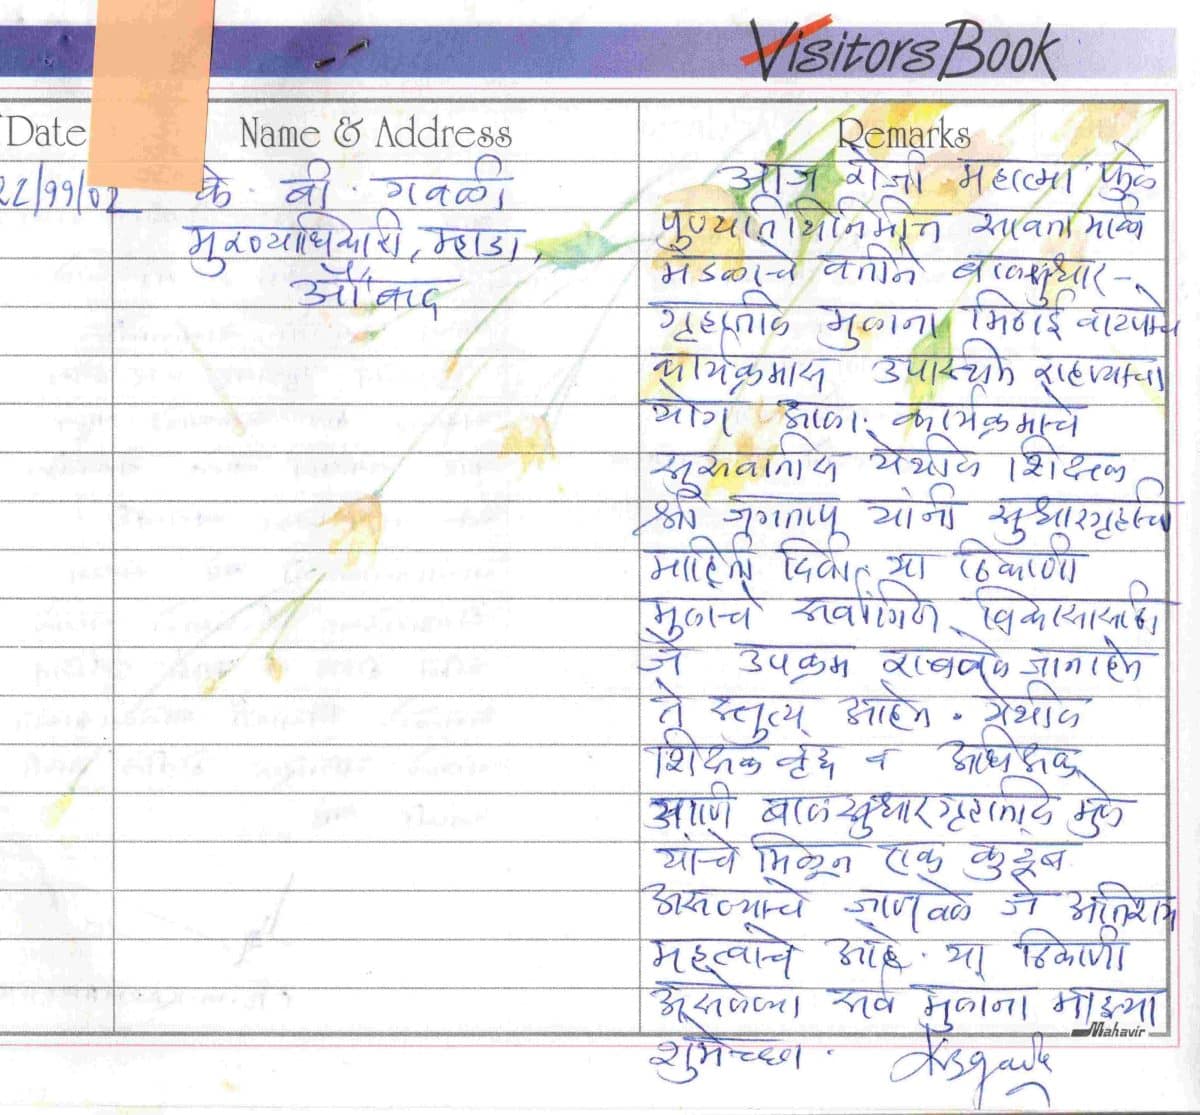 Visitors Book
Date
Name & Address
Remarks
22/११/02
के. बी. गवळी
मुख्याधिकारी, म्हाडा,
औ'बाद
आज रोजी महात्मा फुले
पुण्यतिथिनिमित्त सावता माळी
मंडळाचे वतीने बालसुधार-
गृहातील मुलांना मिठाई वाटपाचे
कार्यक्रमास उपस्थित राहण्याचा
योग आला. कार्यक्रमाचे
सुरुवातीस येथील शिक्षक
श्री जगताप यांनी सुधारगृहाची
माहिती दिली. या ठिकाणी
मुलांचे सर्वांगिण विकासासाठी
जे उपक्रम राबवले जात आहेत
ते स्तुत्य आहेत. येथील
शिक्षक वृंद व अधिक्षक
आणि बालसुधारगृहातील मुले
यांचे मिळून एक कुटूंब
असल्याचे जाणवले जे अतिशय
महत्वाचे आहे. या ठिकाणी
असलेल्या सर्व मुलांना माझ्या
शुभेच्छा.
Mahavir